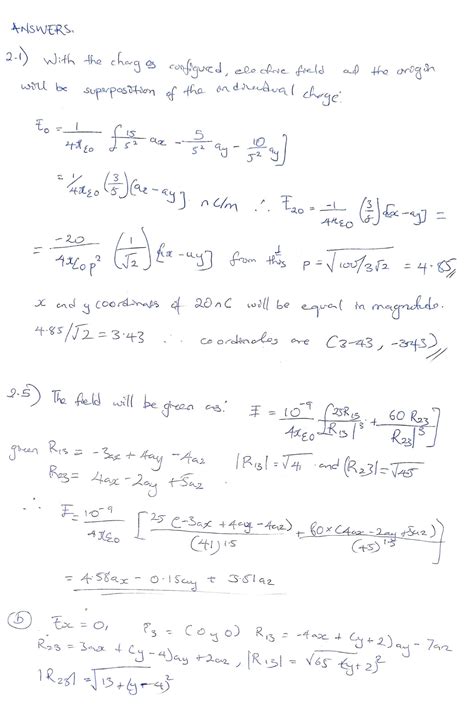 ANSWERS.
2.1) With the charges configured, electric field at the origin
will be superposition of the individual charge.
E₀ = 1/4πε₀ [15/5² ax - 5/5² ay - 10/5² ay]
= 1/4πε₀ (3/5) [ax - ay] nC/m ∴ E₂₀ = -1/4πε₀ (3/5) [ax - ay] =
= -20/4πε₀p² (1/√2) [ax - ay] from this p = √100/3√2 = 4.85
x and y coordinates of 20nC will be equal in magnitude.
4.85/√2 = 3.43 ∴ coordinates are (3-43, -343)
2.5) The field will be given as: E = 10⁻⁹/4πε₀ [25R₁₃/|R₁₃|³ + 60 R₂₃/R₂₃|³]
given R₁₃ = -3ax + 4ay - 4az |R₁₃| = √41 and |R₂₃| = √45
R₂₃ = 4ax - 2ay + 5az
∴ E = 10⁻⁹/4πε₀ [25 (-3ax + 4ay - 4az)/(41)^1.5 + 60 × (4ax - 2ay + 5az)/(45)^1.5]
= 4.58ax - 0.15ay + 5.51az
(b) Ex = 0, r₃ = (0 y 0) R₁₃ = -4ax + (y+2)ay - 7az
R₂₃ = 3ax + (y-4)ay + 2az, |R₁₃| = √65 + (y+2)²
|R₂₃| = √13 + (y-4)²